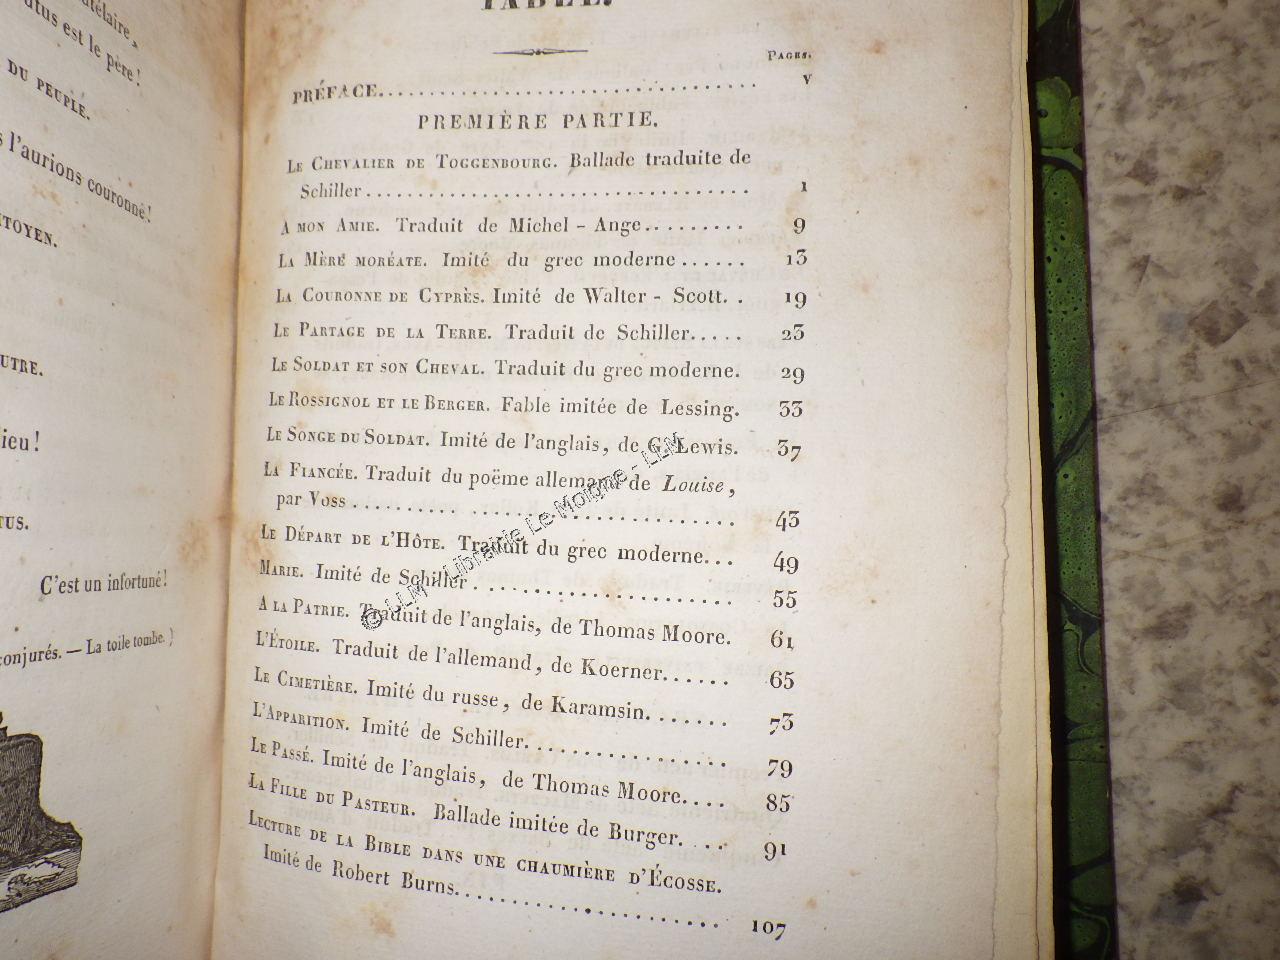 atélaire,
utus est le père!
DU PEUPLE.
l'aurions couronné!
TOYEN.
UTRE.
ieu!
TUS.
C'est un infortuné!
conjurés. — La toile tombe.)
TABLE.
Pages.
PRÉFACE................................. v
PREMIÈRE PARTIE.
Le Chevalier de Toggenbourg. Ballade traduite de
Schiller................................... 1
A mon Amie. Traduit de Michel-Ange......... 9
La Mère moréate. Imité du grec moderne...... 13
La Couronne de Cyprès. Imité de Walter-Scott. . 19
Le Partage de la Terre. Traduit de Schiller..... 23
Le Soldat et son Cheval. Traduit du grec moderne. 29
Le Rossignol et le Berger. Fable imitée de Lessing. 33
Le Songe du Soldat. Imité de l'anglais, de G. Lewis. 37
La Fiancée. Traduit du poëme allemand de Louise,
par Voss................................ 43
Le Départ de l'Hôte. Traduit du grec moderne... 49
Marie. Imité de Schiller....................... 55
A la Patrie. Traduit de l'anglais, de Thomas Moore. 61
L'Étoile. Traduit de l'allemand, de Koerner...... 65
Le Cimetière. Imité du russe, de Karamsin....... 73
L'Apparition. Imité de Schiller................ 79
Le Passé. Imité de l'anglais, de Thomas Moore.... 85
La Fille du Pasteur. Ballade imitée de Burger. ... 91
Lecture de la Bible dans une chaumière d'Écosse.
Imité de Robert Burns...................... 107
© LLM - Librairie Le Moigne - LLM